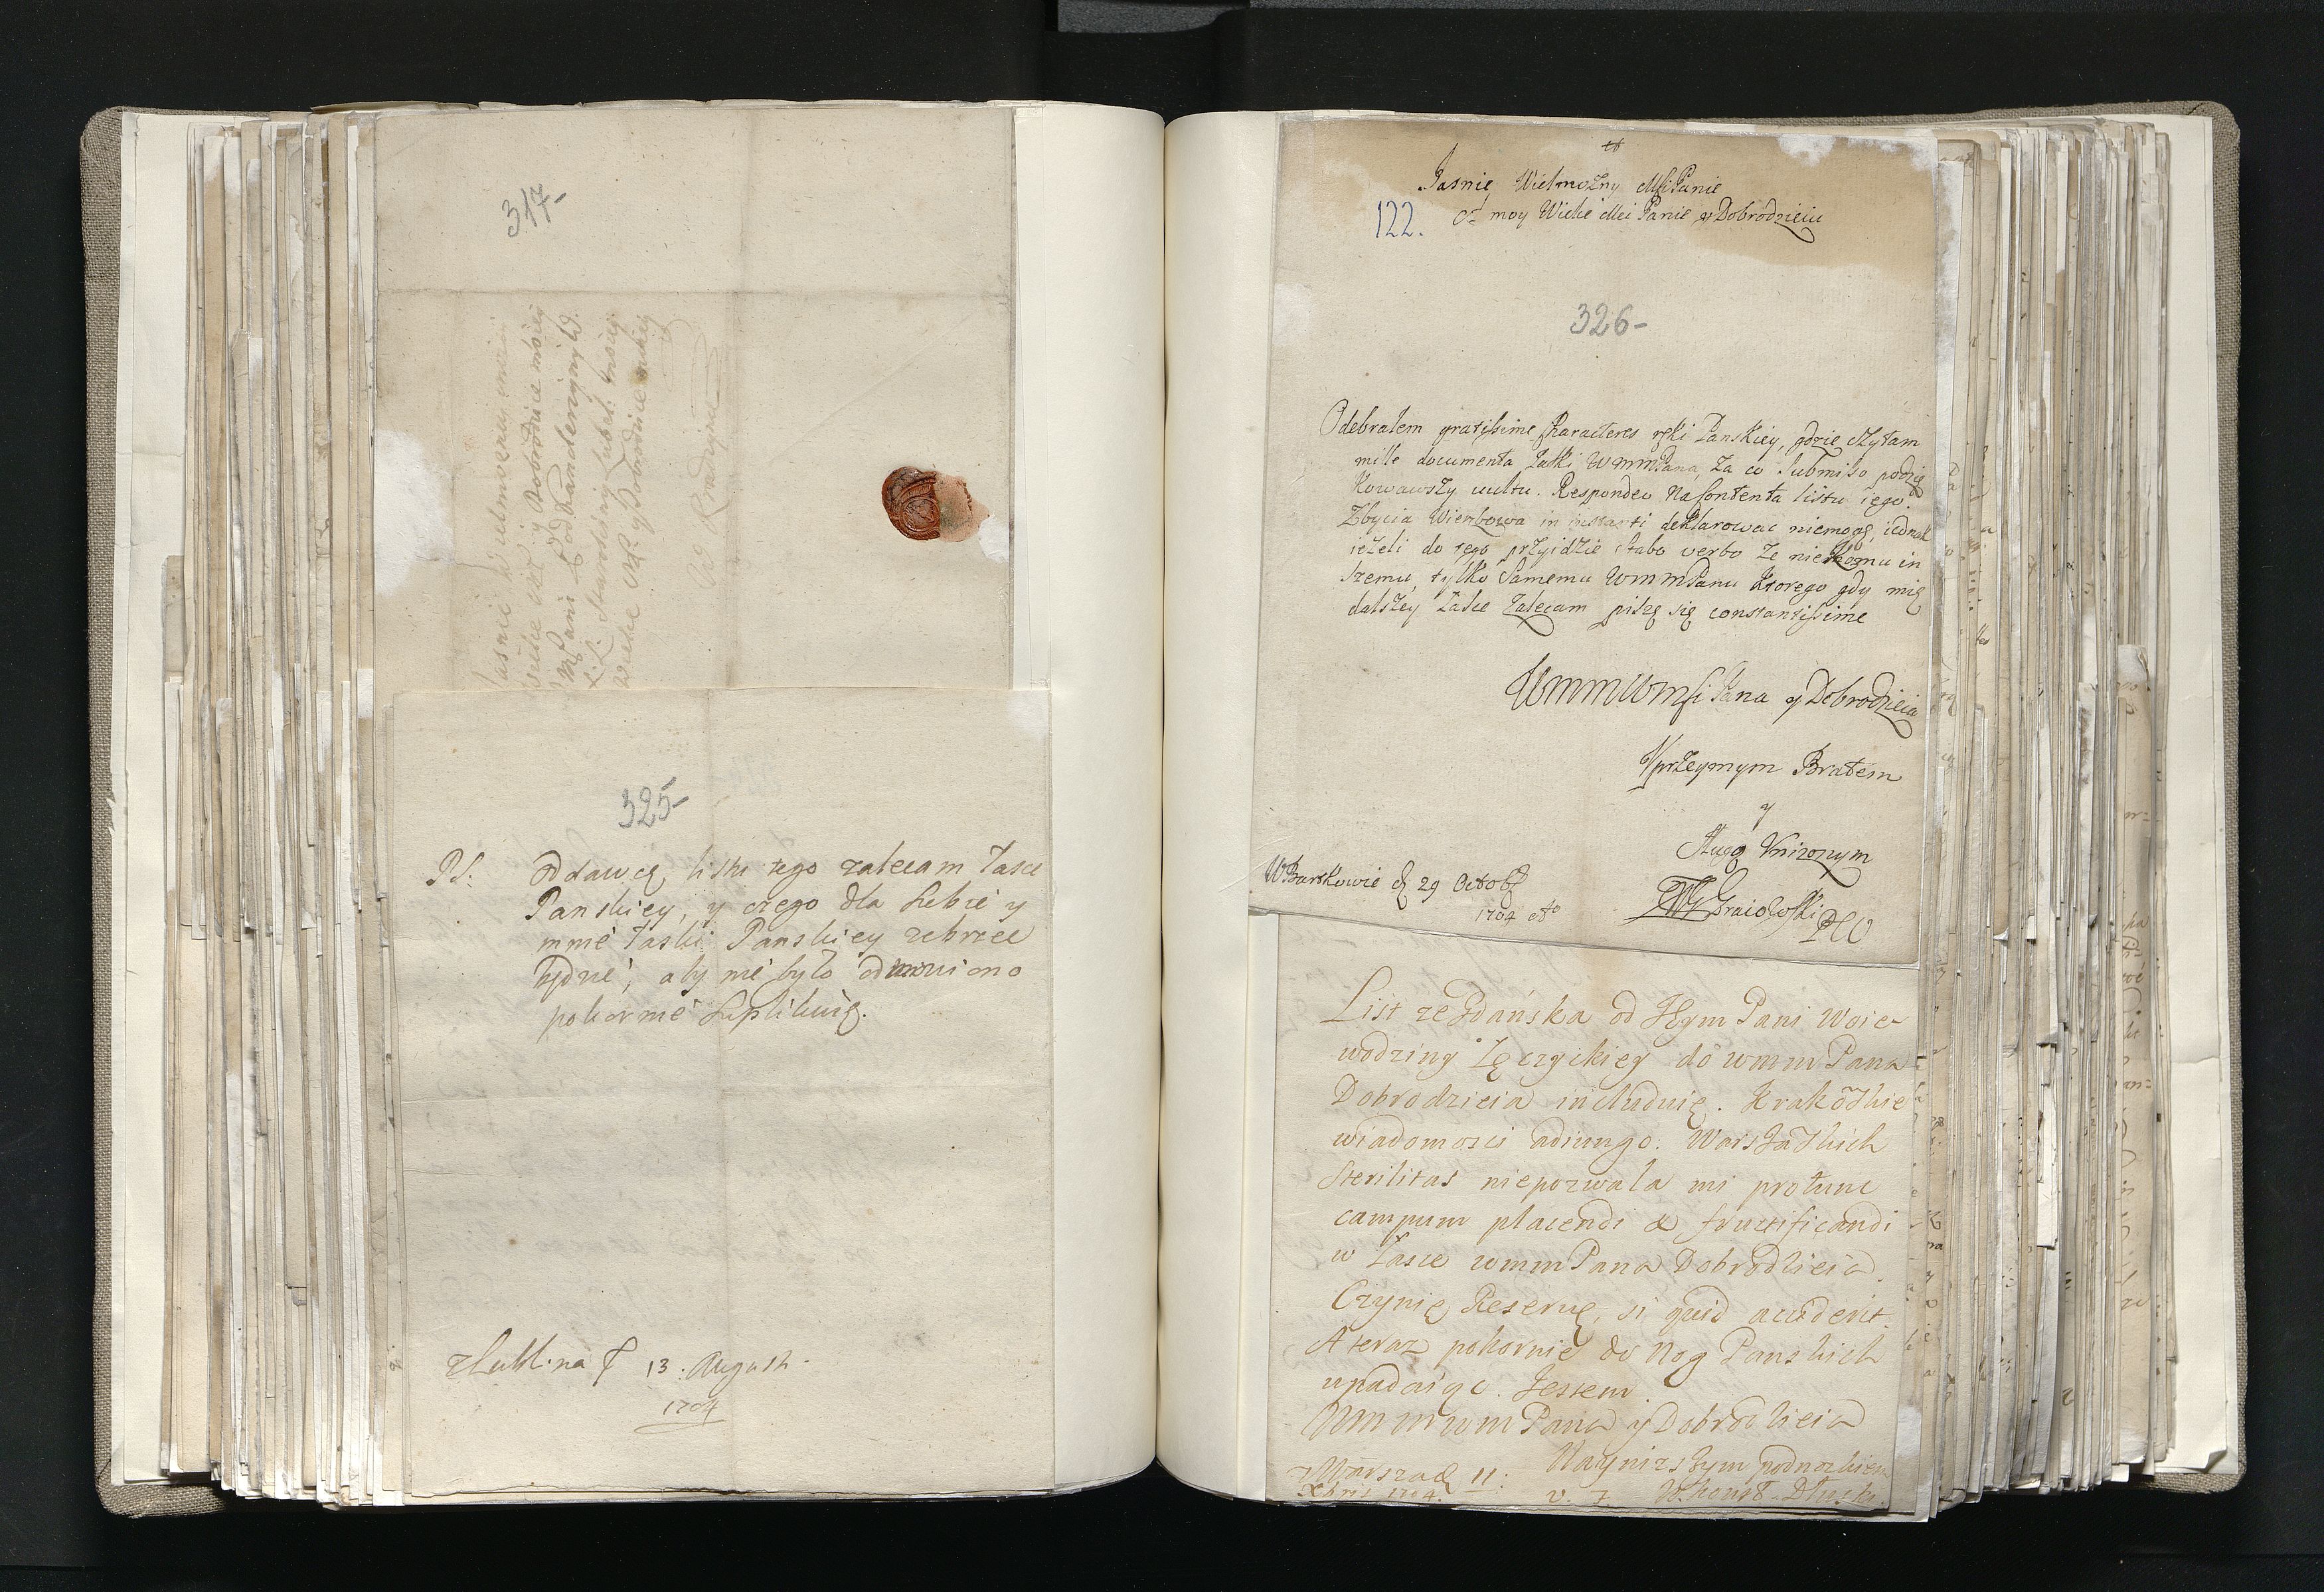 317-
Jasnie Wielmozney
wielce y Dobrodzice moiey
Pani Podkanclerzyny W.
L: Starosciny Lubel: moiey
wielce y Dobrodzice
325-
PS: oddawcę listu tego zalecam łasce
Panskiey, y czego dla siebie y
mnie łaski Panskiey zebrzec
będzie, aby nie było odmowiono
pokornie suplikuię.
z Lublina d 13: Augusti.
1704
Jasnie Wielmozny Msci Panie
122.
a moy Wielce Mci Panie y Dobrodzieiu
326-
Odebrałem gratissime characteres ręki Panskiey, gdzie czytam
mille documenta łaski WMMPana, za co submisso podzię
kowawszy vultu. Respondeo na contenta listu iego.
Zbycia Wierzbowa in instanti deklarowac niemogę, iednak
iezeli do tego przyidzie stabo verbo ze nie komu in
szemu, tylko Samemu WMMPanu ktorego gdy mię
dalszey łasce zalecam piszę się constantissime
WMMWMsci Pana y Dobrodzieia
Uprzeymym Bratem
y
Sługą Unizonym
W Barskowie d 29 Octob
1704 Ao
Graiewski
List ze Gdańska od JEym Pani Woie-
wodziny Łęczyckiey do wmm Pana
Dobrodzieia includuię. Krakowskie
wiadomosci adiungo. Warszawskich
sterilitas niepozwala mi protunc
campum placendi & fructificandi
w łasce wmm Pana Dobrodzieia
Czynię Reserwę, si quid acciderit.
A teraz pokornie do Nog Panskich
upadaiąc. Jestem
Wmmwm Pana y Dobrodzieia
z Warszaw 11:
Nayniszszym podnozkiem
Xbris 1704.
Dłuski